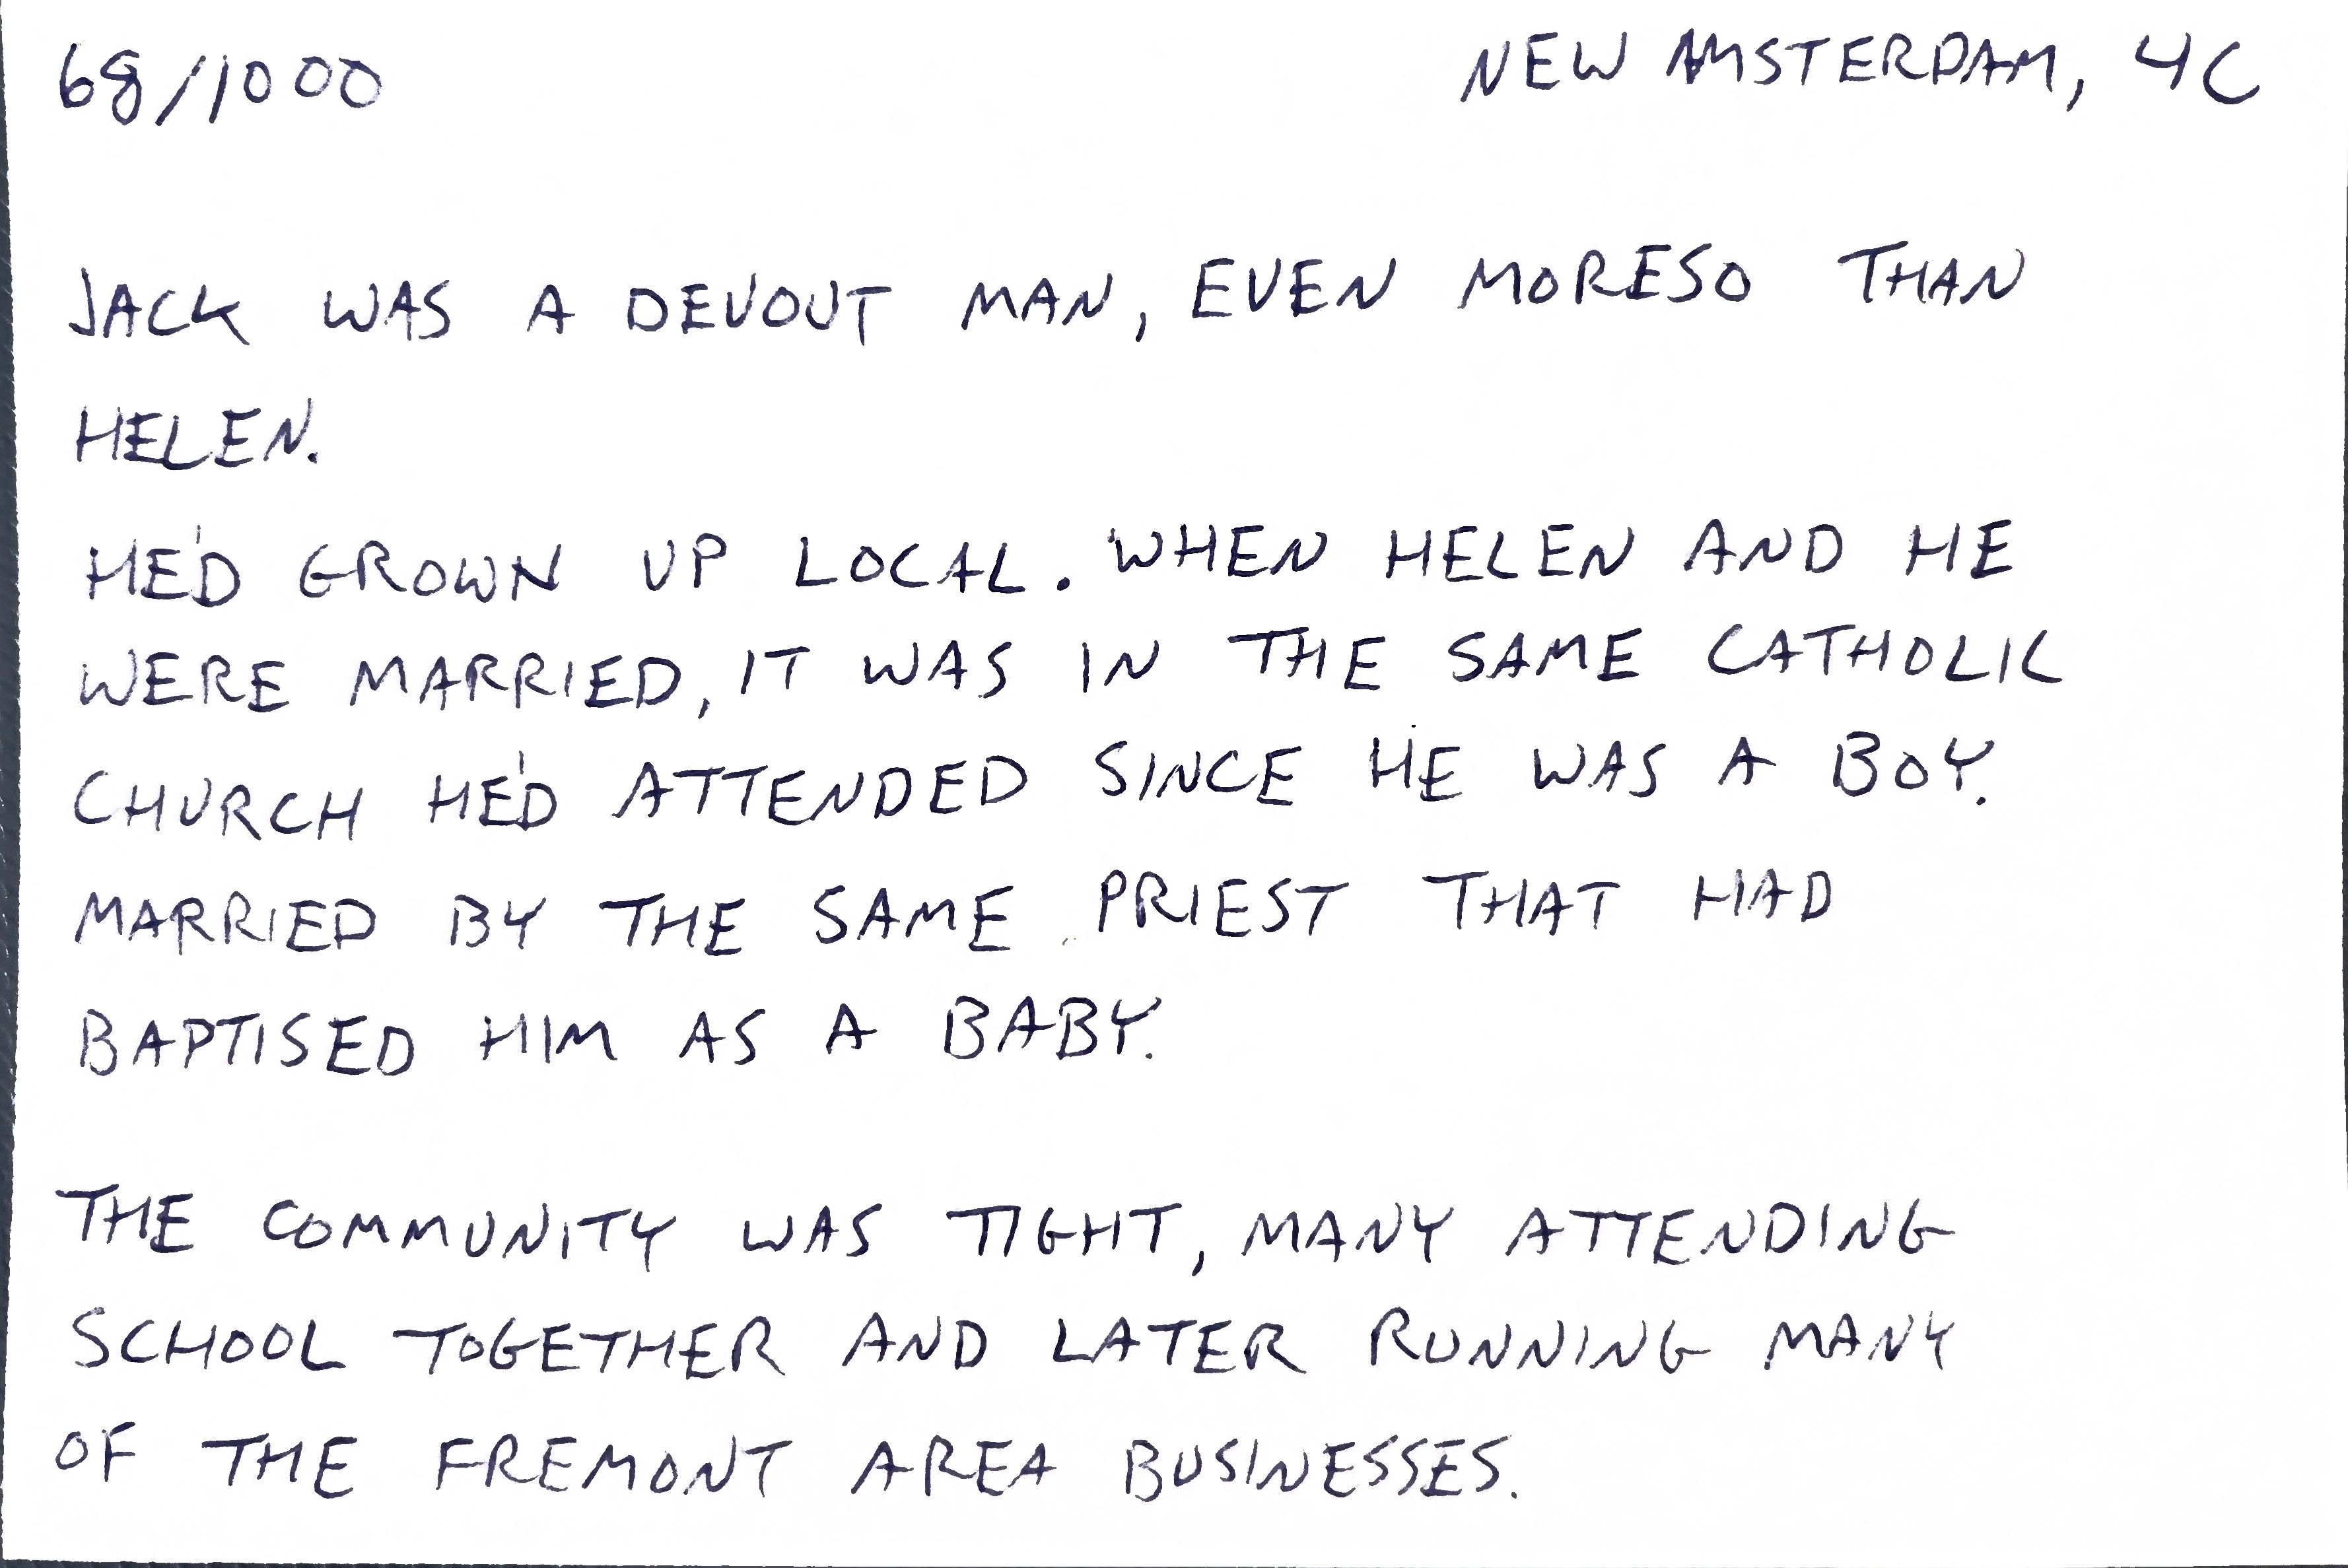 68/1000
NEW AMSTERDAM, 4C
JACK WAS A DEVOUT MAN, EVEN MORESO THAN
HELEN.
HE'D GROWN UP LOCAL. WHEN HELEN AND HE
WERE MARRIED, IT WAS IN THE SAME CATHOLIC
CHURCH HE'D ATTENDED SINCE HE WAS A BOY.
MARRIED BY THE SAME PRIEST THAT HAD
BAPTISED HIM AS A BABY.
THE COMMUNITY WAS TIGHT, MANY ATTENDING
SCHOOL TOGETHER AND LATER RUNNING MANY
OF THE FREMONT AREA BUSINESSES.